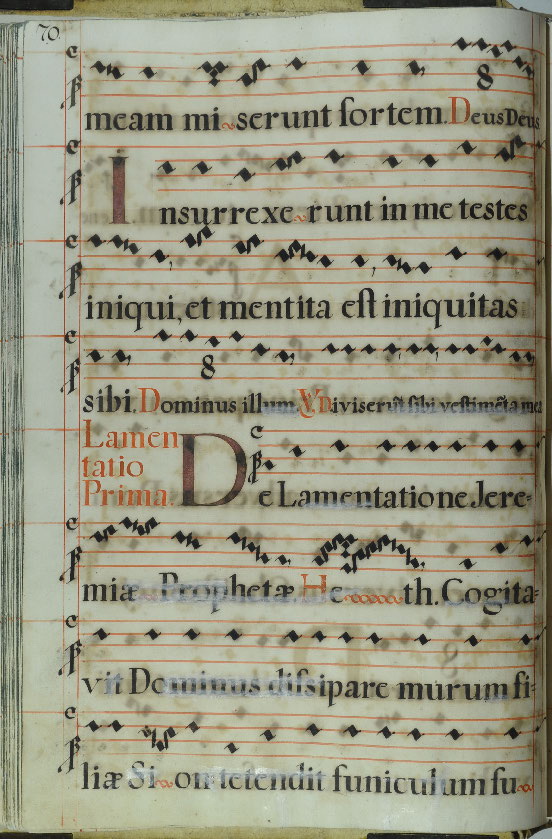 70
meam mi~serunt sortem. Deus Deus
Insurrexe~runt in me testes
8
iniqui, et mentita est iniquitas
sibi. Dominus illum. V. Diviserūt sibi vestimēta mea
8
Lamentatio Prima
De Lamentatione Jere=
miæ Prophetæ. He~~~~th. Cogita=
vit Dominus dissipare murum fi=
liæ Si~on tetendit funiculum su~